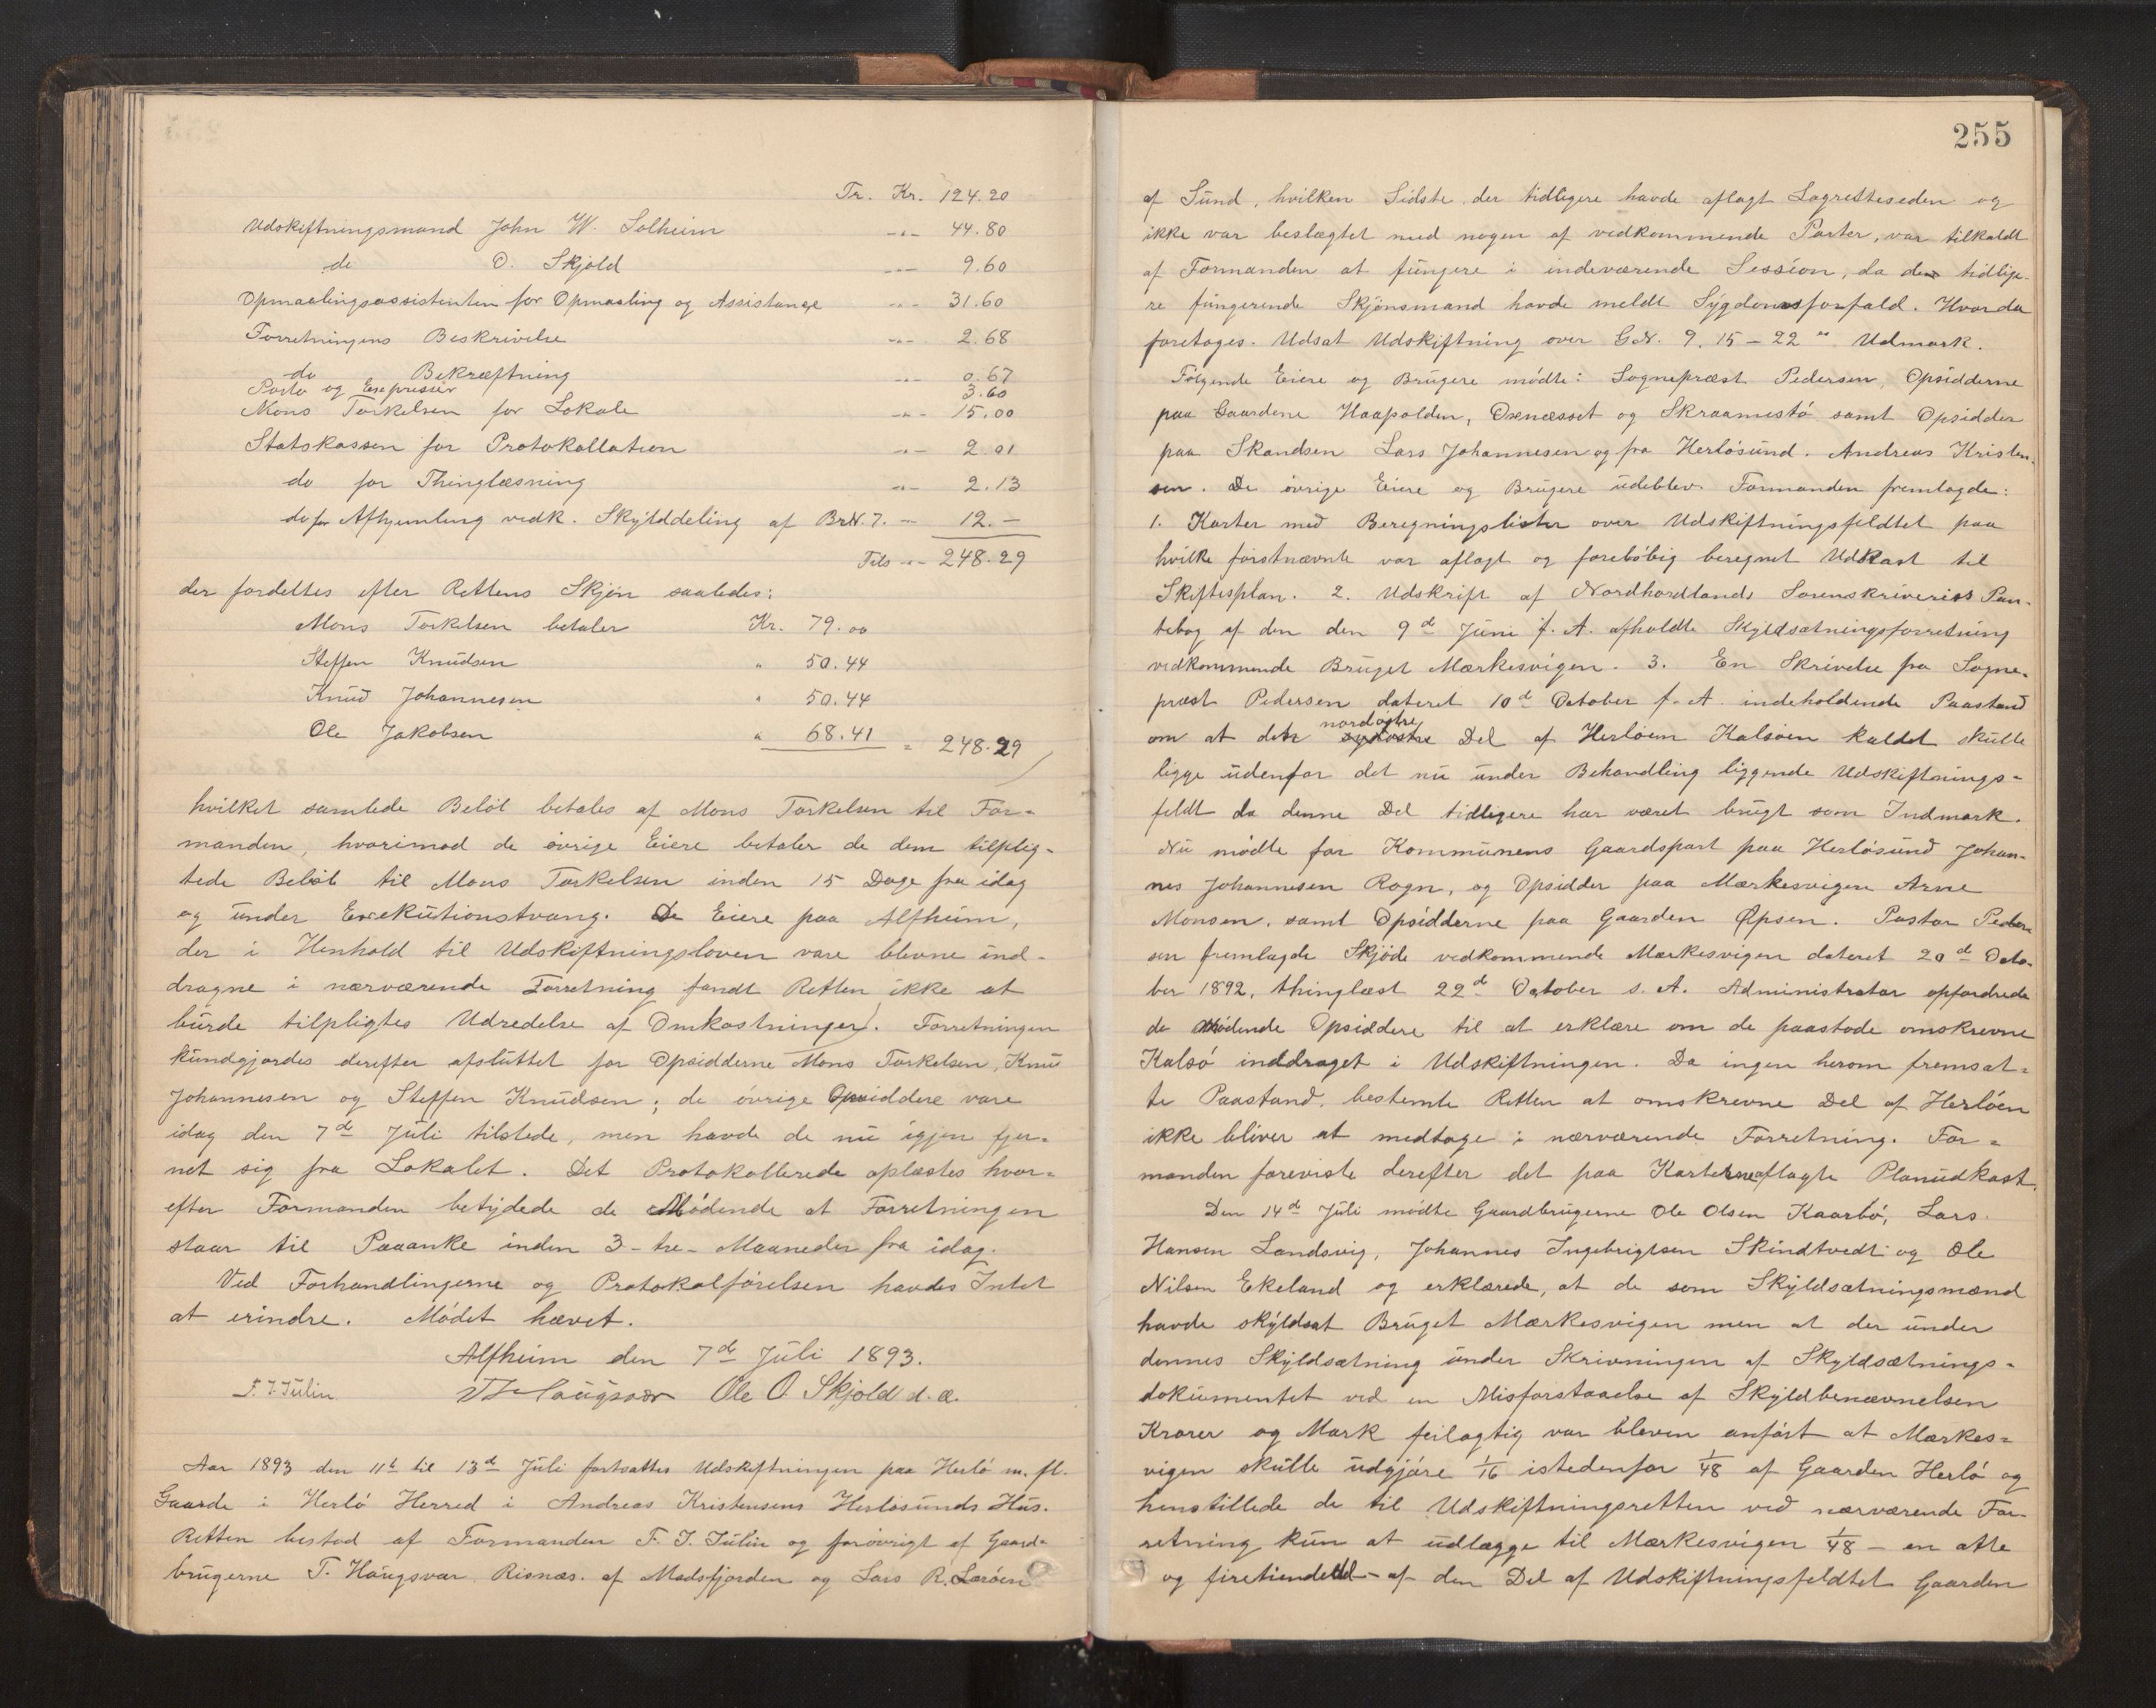 Tr. Kr. 124.20
Udskiftningsmand John W. Solheim -"- 44.80
do O. Skjold -"- 9.60
Opmaalingsassistenten for Opmaaling og Assistance -"- 31.60
Forretningens Beskrivelse -"- 2.68
do Bekræftning -"- 0.67
Porto og Expresser 3.60
Mons Torkelsen for Lokale -"- 15.00
Statskassen for Protokollation -"- 2.01
do for Thinglæsning -"- 2.13
do for Afhjemling vedk. Skylddeling af BrN. 7. -"- 12.-
Tils -"- 248.29
der fordeltes efter Rettens Skjøn saaledes:
Mons Torkelsen betaler Kr. 79.00
Steffen Knudsen " 50.44
Knud Johannesen " 50.44
Ole Jakobsen " 68.41 = 248.29
hvilket samlede Beløb betales af Mons Torkelsen til For-
manden, hvorimod de øvrige Eiere betaler de dem tilplig-
tede Beløb til Mons Torkelsen inden 15 Dage fra idag
og under Exekutionstvang. De Eiere paa Alfheim,
der i Henhold til Udskiftningsloven vare blevne ind-
dragne i nærværende Forretning fandt Retten ikke at
burde tilpligtes Udredelse af Omkostninger. Forretningen
kundgjordes derefter afsluttet for Opsidderne Mons Torkelsen, Knud
Johannesen og Steffen Knudsen; de øvrige Opsiddere vare
idag den 7de Juli tilstede, men havde de nu igjen fjer-
net sig fra Lokalet. Det Protokollerede oplæstes hvor-
efter Formanden betydede de Mødende at Forretningen
staar til Paaanke inden 3 - tre - Maaneder fra idag.
Ved Forhandlingerne og Protokolførelsen havdes Intet
at erindre. Mødet hævet.
Alfheim den 7de Juli 1893.
F. J. Julin T Haugsvær Ole O. Skjold d. æ.
Aar 1893 den 11te til 13de Juli fortsattes Udskiftningen paa Herlø m. fl.
Gaarde i Herlø Herred i Andreas Kristensens Herløsunds Hus.
Retten bestod af Formanden F. J. Julin og forøvrigt af Gaard-
brugerne T. Haugsvær, Risnæs. af Madsfjorden og Lars R. Larøen
255
af Sund, hvilken Sidste der tidligere havde aflagt Lagretteseden og
ikke var beslægtet med nogen af vedkommende Parter, var tilkaldt
af Formanden at fungere i indeværende Session, da den tidlige-
re fungerende Skjønsmand havde meldt Sygdomsforfald. Hvorda
foretoges. Udsat Udskiftning over GN. 9, 15 - 22 " Udmark.
Følgende Eiere og Brugere mødte: Sognepræst Pedersen, Opsidderne
paa Gaardene Haapolden, Oxnæsset og Skraamestø samt Opsidder
paa Skandsen Lars Johannesen og fra Herløsund. Andreas Kristen-
sen. De øvrige Eiere og Brugere udeblev. Formanden fremlagde:
1. Karter med Beregningslister over Udskiftningsfeldtet paa
hvilke førstnævnte var aflagt og foreløbig beregnet Udkast til
Skiftesplan. 2. Udskrift af Nordhordlands Sorenskriveries Pan-
tebog af den den 9de Juni f. A. afholdte Skyldsætningsforretning
vedkommende Bruget Mærkesvigen. 3. En Skrivelse fra Sogne-
præst Pedersen dateret 10de October f. A. indeholdende Paastand
nordøstre
om at den Del af Herløen Kalsøen kaldet skulle
ligge udenfor det nu under Behandling liggende Udskiftnings-
feldt da denne Del tidligere har været brugt som Indmark.
Nu mødte for Kommunens Gaardspart paa Herløsund Johan-
nes Johannesen Rogn, og Opsidder paa Mærkesvigen Arne
Monsen, samt Opsidderne paa Gaarden Øpsen. Pastor Peder-
sen fremlagde Skjøde vedkommende Mærkesvigen dateret 20de Octo-
ber 1892, thinglæst 22de October s. A. Administrator opfordrede
de Mødende Opsiddere til at erklære om de paastode omskrevne
Kalsø inddraget i Udskiftningen. Da ingen herom fremsat-
te Paastand, bestemte Retten at omskrevne Del af Herløen
ikke bliver at medtage i nærværende Forretning. For-
manden foreviste derefter det paa Karterne aflagte Planudkast.
Den 14de Juli mødte Gaardbrugerne Ole Olsen Kaarbø, Lars
Hansen Landsvig, Johannes Ingebrigtsen Skindtvedt og Ole
Nilsen Ekeland og erklærede, at de som Skyldsætningsmænd
havde skyldsat Bruget Mærkesvigen men at der under
dennes Skyldsætning under Skrivningen af Skyldsætnings-
dokumentet ved en Misforstaaelse af Skyldbenævnelsen
Kroner og Mark feilagtig var bleven anført at Mærkes-
vigen skulle udgjøre 1/16 istedenfor 1/48 af Gaarden Herlø og
henstillede de til Udskiftningsretten ved nærværende For-
retning kun at udlægge til Mærkesvigen 1/48 - en otte
og firetiendedel - af den Del af Udskiftningsfeldtet Gaarden